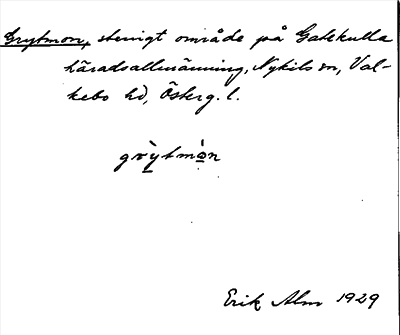 Grytmon, stenigt område på Gatekulla
häradsallmänning, Nykils sn, Val-
kebo hd, Österg. l.
grỳtmòn
Erik Alm 1929